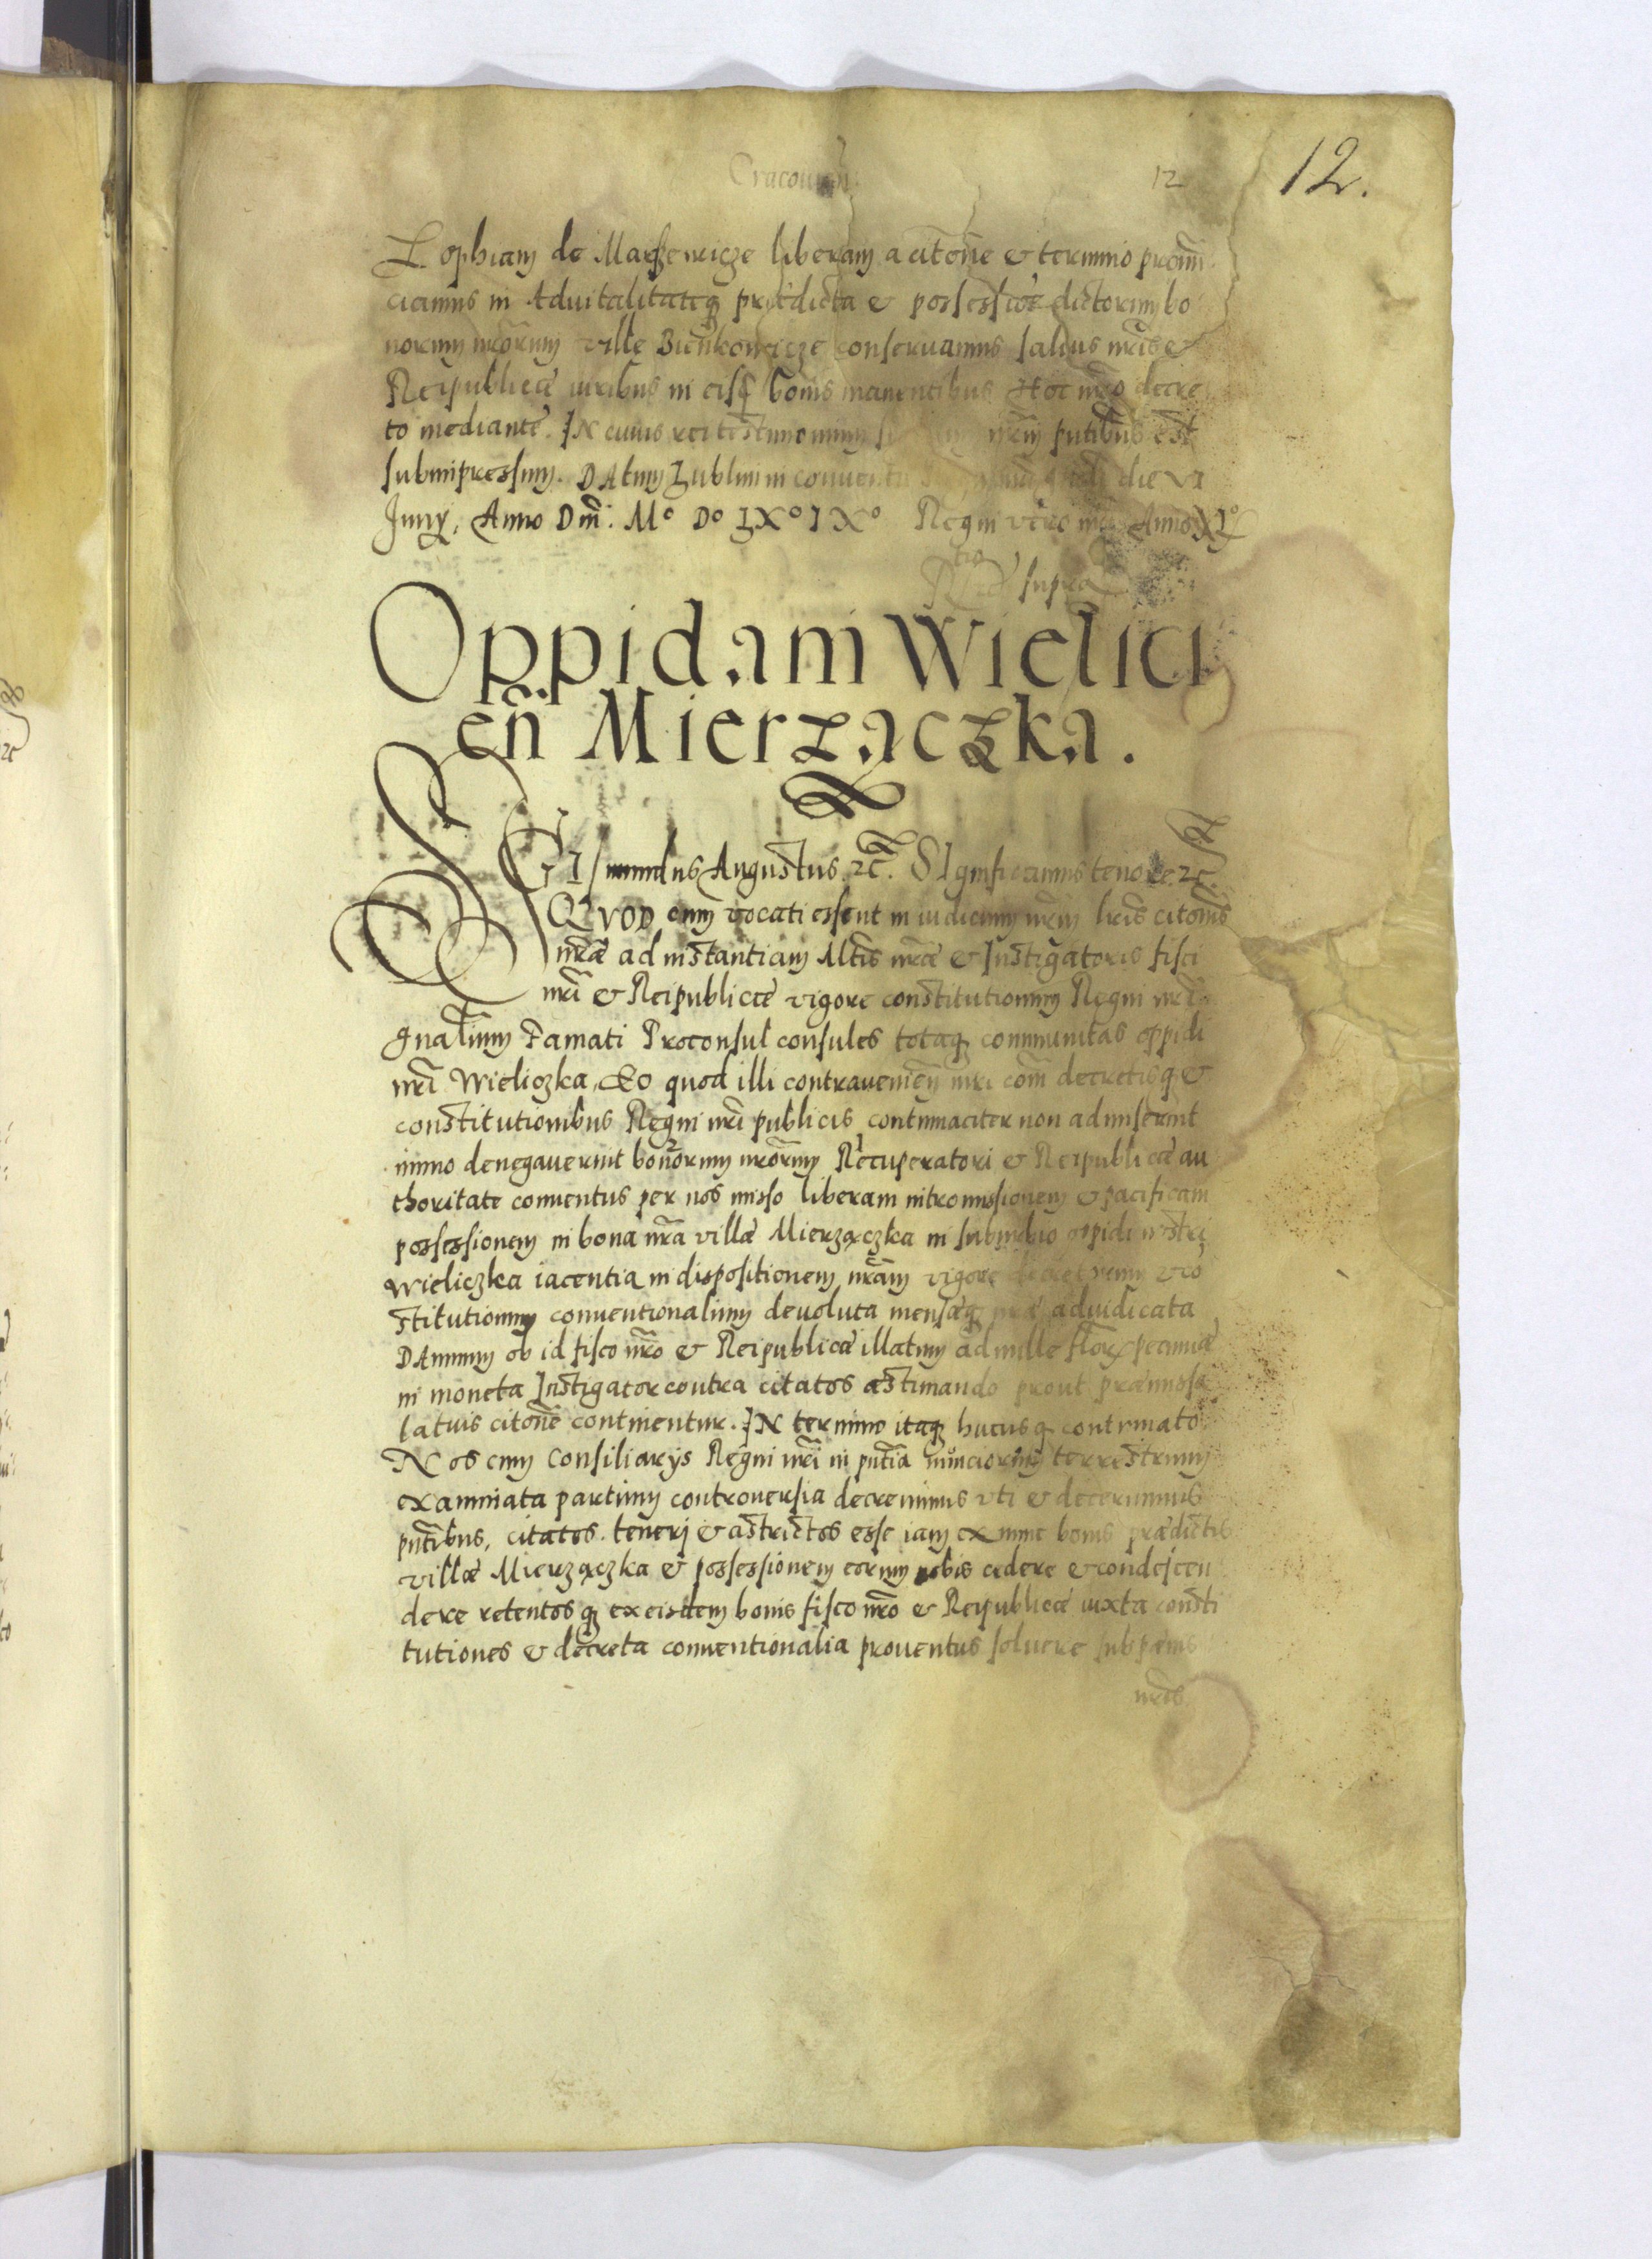 Cracouien
12 12.
Zophiam de Marszewicze liberam a citone & termino pronūn
ciamus in Aduitalitateq prædicta & possessioē dictorum bo
norum nrorum villę Bieńkowicze conseruamus saluis nris &
Reipublicæ iuribus in eisq bonis manentibus Hoc nro decre
to mediante. IN cuius rei testimonium nrm pntibus est
subimpressum. DAtum Lublini in conuentu die VI
Juny, Anno Dni: Mº Dº LXº IXº Regni vero nri Anno XLº
Rtio qd supra
Oppidani Wielici
eñ Mierzączka.
SIGIsmundus Augustus. 2c. SIgnificamus tenore. 2c.
QVOD cum vocati essent in iudicium nrm lris citonis
nræ ad instantiam Mtis nræ & Instigatoris fisci
nri & Reipublicæ vigore constitutionum Regni nri
gnalium Famati Proconsul consules totaq communitas oppidi
nri Wieliczka, Eo quod illi contrauenien iuri com decretisq &
constitutionibus Regni nri publicis contumaciter non admiserint
immo denegauerint bonorum nrorum Recuperatori & Reipublicæ au
thoritate conuentus per nos misso liberam intromissionem & pacificam
possessionem in bona nra villæ Mierzączka in suburbio oppidi nostri
Wieliczka iacentia in dispositionem nram vigore decretorum & co
stitutionum conuentionalium deuoluta mensæq nræ adiudicata
DAmnum ob id fisco nro & Reipublicæ illatum ad mille flor pecuniæ
in moneta Instigator contra citatos æstimando prout præmissa
latius citone continentur. IN termino itaq hucusq continuato
Nos cum Consiliarys Regni nri in pntia nunciorum terrestrium
examinata partium controuersia decreuimus vti & decernimus
pntibus, citatos teneri & astrictos esse iam ex nunc bonis prædictis
villæ Mierzączka & possessionem eorum nobis cedere & condescen
dere retentos q ex eisdem bonis fisco nro & Reipublicæ iuxta consti
tutiones & decreta conuentionalia prouentus soluere sub pænis
nris